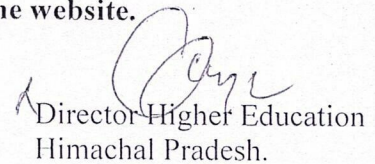 ne website.
Director Higher Education
Himachal Pradesh.